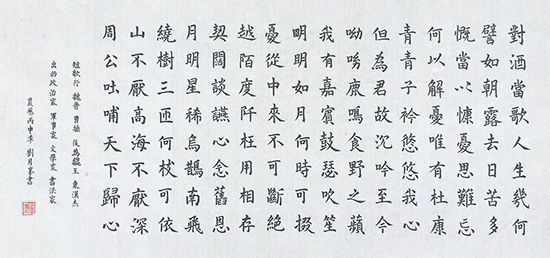 對酒當歌人生幾何
譬如朝露去日苦多
慨當以慷憂思難忘
何以解憂唯有杜康
青青子衿悠悠我心
但為君故沉吟至今
呦呦鹿鳴食野之蘋
我有嘉賓鼓瑟吹笙
明明如月何時可掇
憂從中來不可斷絕
越陌度阡枉用相存
契闊談讌心念舊恩
月明星稀烏鵲南飛
繞樹三匝何枝可依
山不厭高海不厭深
周公吐哺天下歸心
短歌行 魏晉 曹操 後為魏王 東漢杰
出的政治家 軍事家 文學家 書法家
丙申年 劉月 書